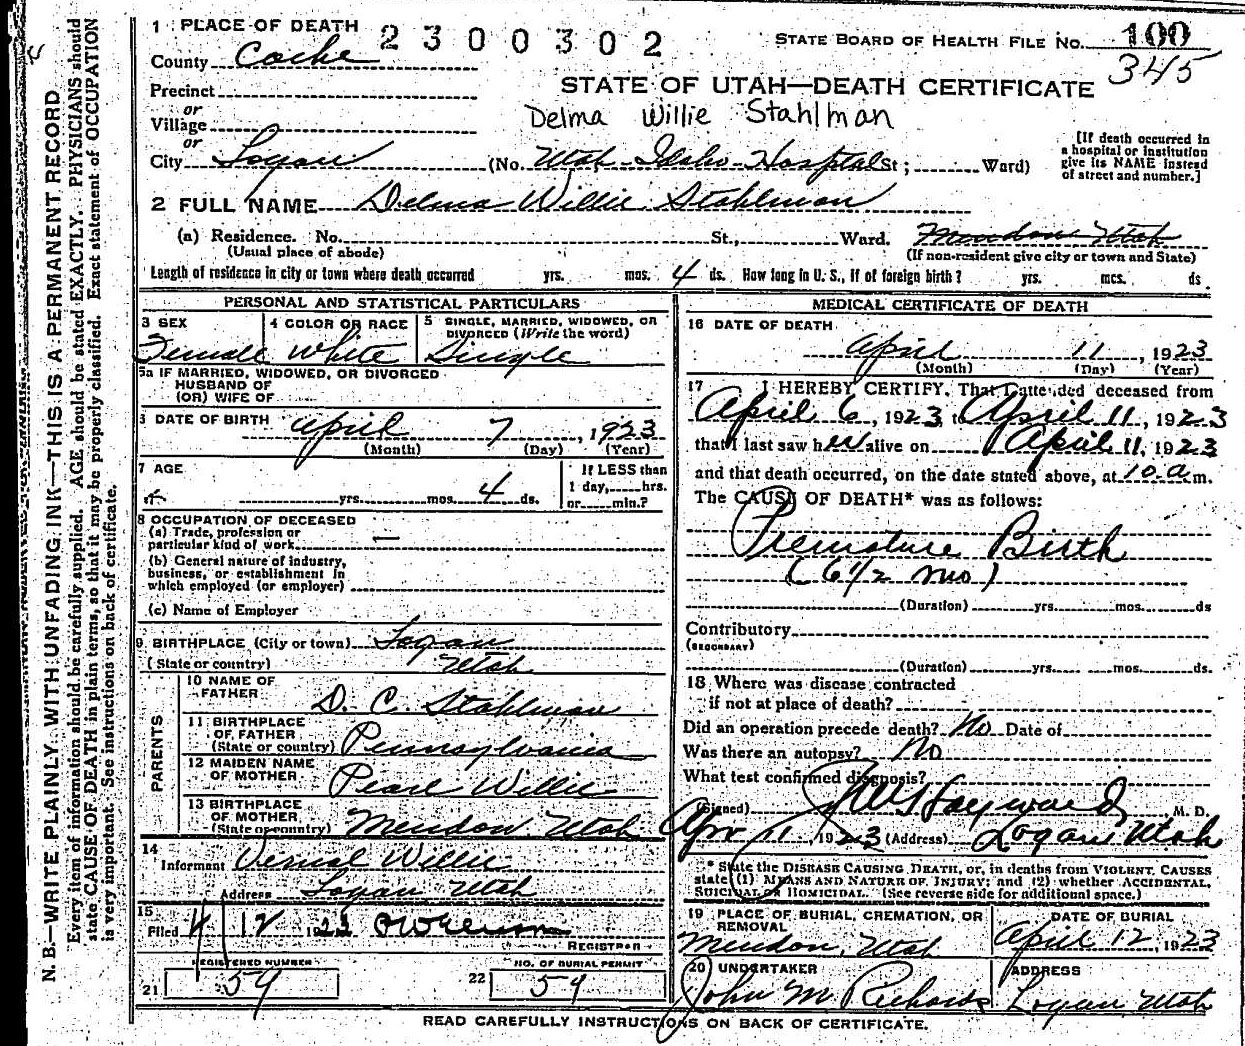 1 PLACE OF DEATH 2300302 STATE BOARD OF HEALTH FILE NO. 100
County Cache 345
Precinct STATE OF UTAH—DEATH CERTIFICATE
or
Village Delma Willie Stahlman
or
City Logan (No. Utah-Idaho-Hospital St; Ward)
[If death occurred in
a hospital or institution
give its NAME instead
of street and number.]
2 FULL NAME Delma Willie Stahlman
(a) Residence. No. St., Ward. Mendon Utah
(Usual place of abode) (If non-resident give city or town and State)
Length of residence in city or town where death occurred yrs. mos. 4 ds. How long in U. S., if of foreign birth? yrs. mos. ds.
PERSONAL AND STATISTICAL PARTICULARS
3 SEX 4 COLOR OR RACE 5 SINGLE, MARRIED, WIDOWED, OR
DIVORCED (Write the word)
Female White Single
5a IF MARRIED, WIDOWED, OR DIVORCED
HUSBAND OF
(OR) WIFE OF
6 DATE OF BIRTH April 7, 1923
(Month) (Day) (Year)
7 AGE If LESS than
yrs. mos. 4 ds. 1 day, hrs.
or min.?
8 OCCUPATION OF DECEASED
(a) Trade, profession or
particular kind of work —
(b) General nature of industry,
business, or establishment in
which employed (or employer)
(c) Name of Employer
9 BIRTHPLACE (City or town) Logan
(State or country) Utah
PARENTS
10 NAME OF
FATHER D. C. Stahlman
11 BIRTHPLACE
OF FATHER
(State or country) Pennsylvania
12 MAIDEN NAME
OF MOTHER Pearl Willie
13 BIRTHPLACE
OF MOTHER
(State or country) Mendon, Utah
14
Informant Vernal Willie
Address Logan Utah
15
Filed 4/12 1923
REGISTRAR
REGISTERED NUMBER NO. OF BURIAL PERMIT
21 59 22 59
MEDICAL CERTIFICATE OF DEATH
16 DATE OF DEATH
April 11, 1923
(Month) (Day) (Year)
17 I HEREBY CERTIFY, That I attended deceased from
April 6, 1923, to April 11, 1923
that I last saw her alive on April 11, 1923
and that death occurred, on the date stated above, at 10.a m.
The CAUSE OF DEATH* was as follows:
Premature Birth
(6 1/2 mo)
(Duration) yrs. mos. ds
Contributory
(SECONDARY)
(Duration) yrs. mos. ds.
18 Where was disease contracted
if not at place of death?
Did an operation precede death? No Date of
Was there an autopsy? No
What test confirmed diagnosis?
(Signed) Hayward M. D.
Apr 11, 1923 (Address) Logan Utah
* State the DISEASE CAUSING DEATH, or, in deaths from VIOLENT CAUSES
state (1) MEANS AND NATURE OF INJURY; and (2) whether ACCIDENTAL,
SUICIDAL or HOMICIDAL. (See reverse side for additional space.)
19 PLACE OF BURIAL, CREMATION, OR DATE OF BURIAL
REMOVAL
Mendon, Utah April 12, 1923
20 UNDERTAKER ADDRESS
John M. Richards Logan, Utah
READ CAREFULLY INSTRUCTIONS ON BACK OF CERTIFICATE.
N. B.—WRITE PLAINLY, WITH UNFADING INK—THIS IS A PERMANENT RECORD
Every item of information should be carefully supplied. AGE should be stated EXACTLY. PHYSICIANS should
state CAUSE OF DEATH in plain terms, so that it may be properly classified. Exact statement of OCCUPATION
is very important. See instructions on back of certificate.